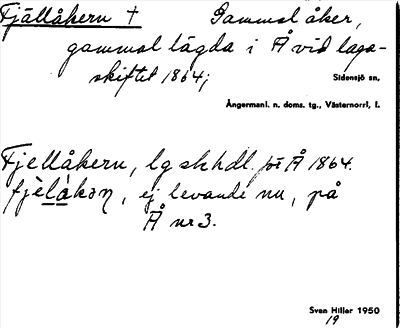 Fjällåkern † Gammal åker,
gammal lägda i Å vid laga-
skiftet 1864;
Sidensjö sn,
Ångermanl. n. doms. tg., Västernorrl, l.
Fjellåkern, lg skhdl. på Å 1864.
fjèlàkəɳ, ej levande nu, på
Å nr 3.
Sven Hiller 1950
19